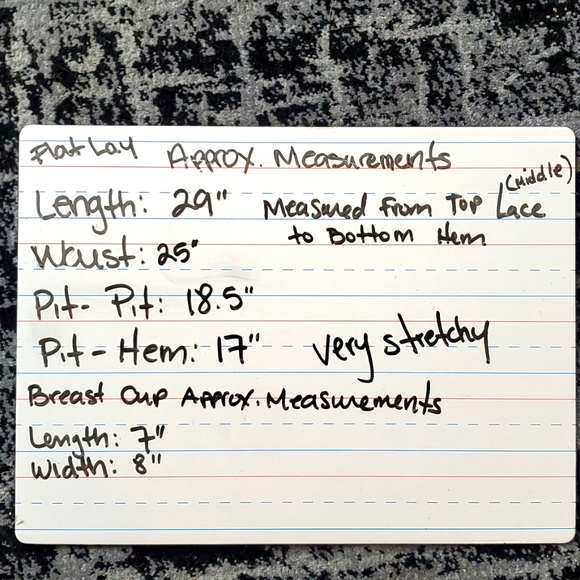 Flat Lay Approx. Measurements
Length: 29" Measured from Top Lace (Middle)
to Bottom Hem
Waist: 25"
Pit- Pit: 18.5"
Pit - Hem: 17" very stretchy
Breast Cup Approx. Measurements
Length: 7"
Width: 8"